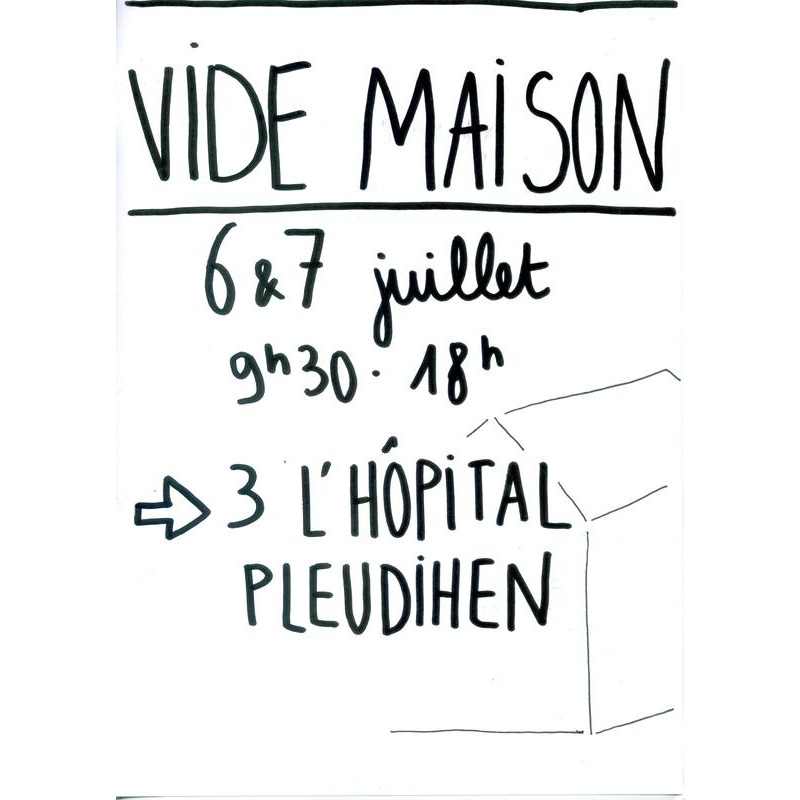 VIDE MAISON
6 & 7 juillet
9h30 · 18h
⇨ 3 L'HÔPITAL
PLEUDIHEN